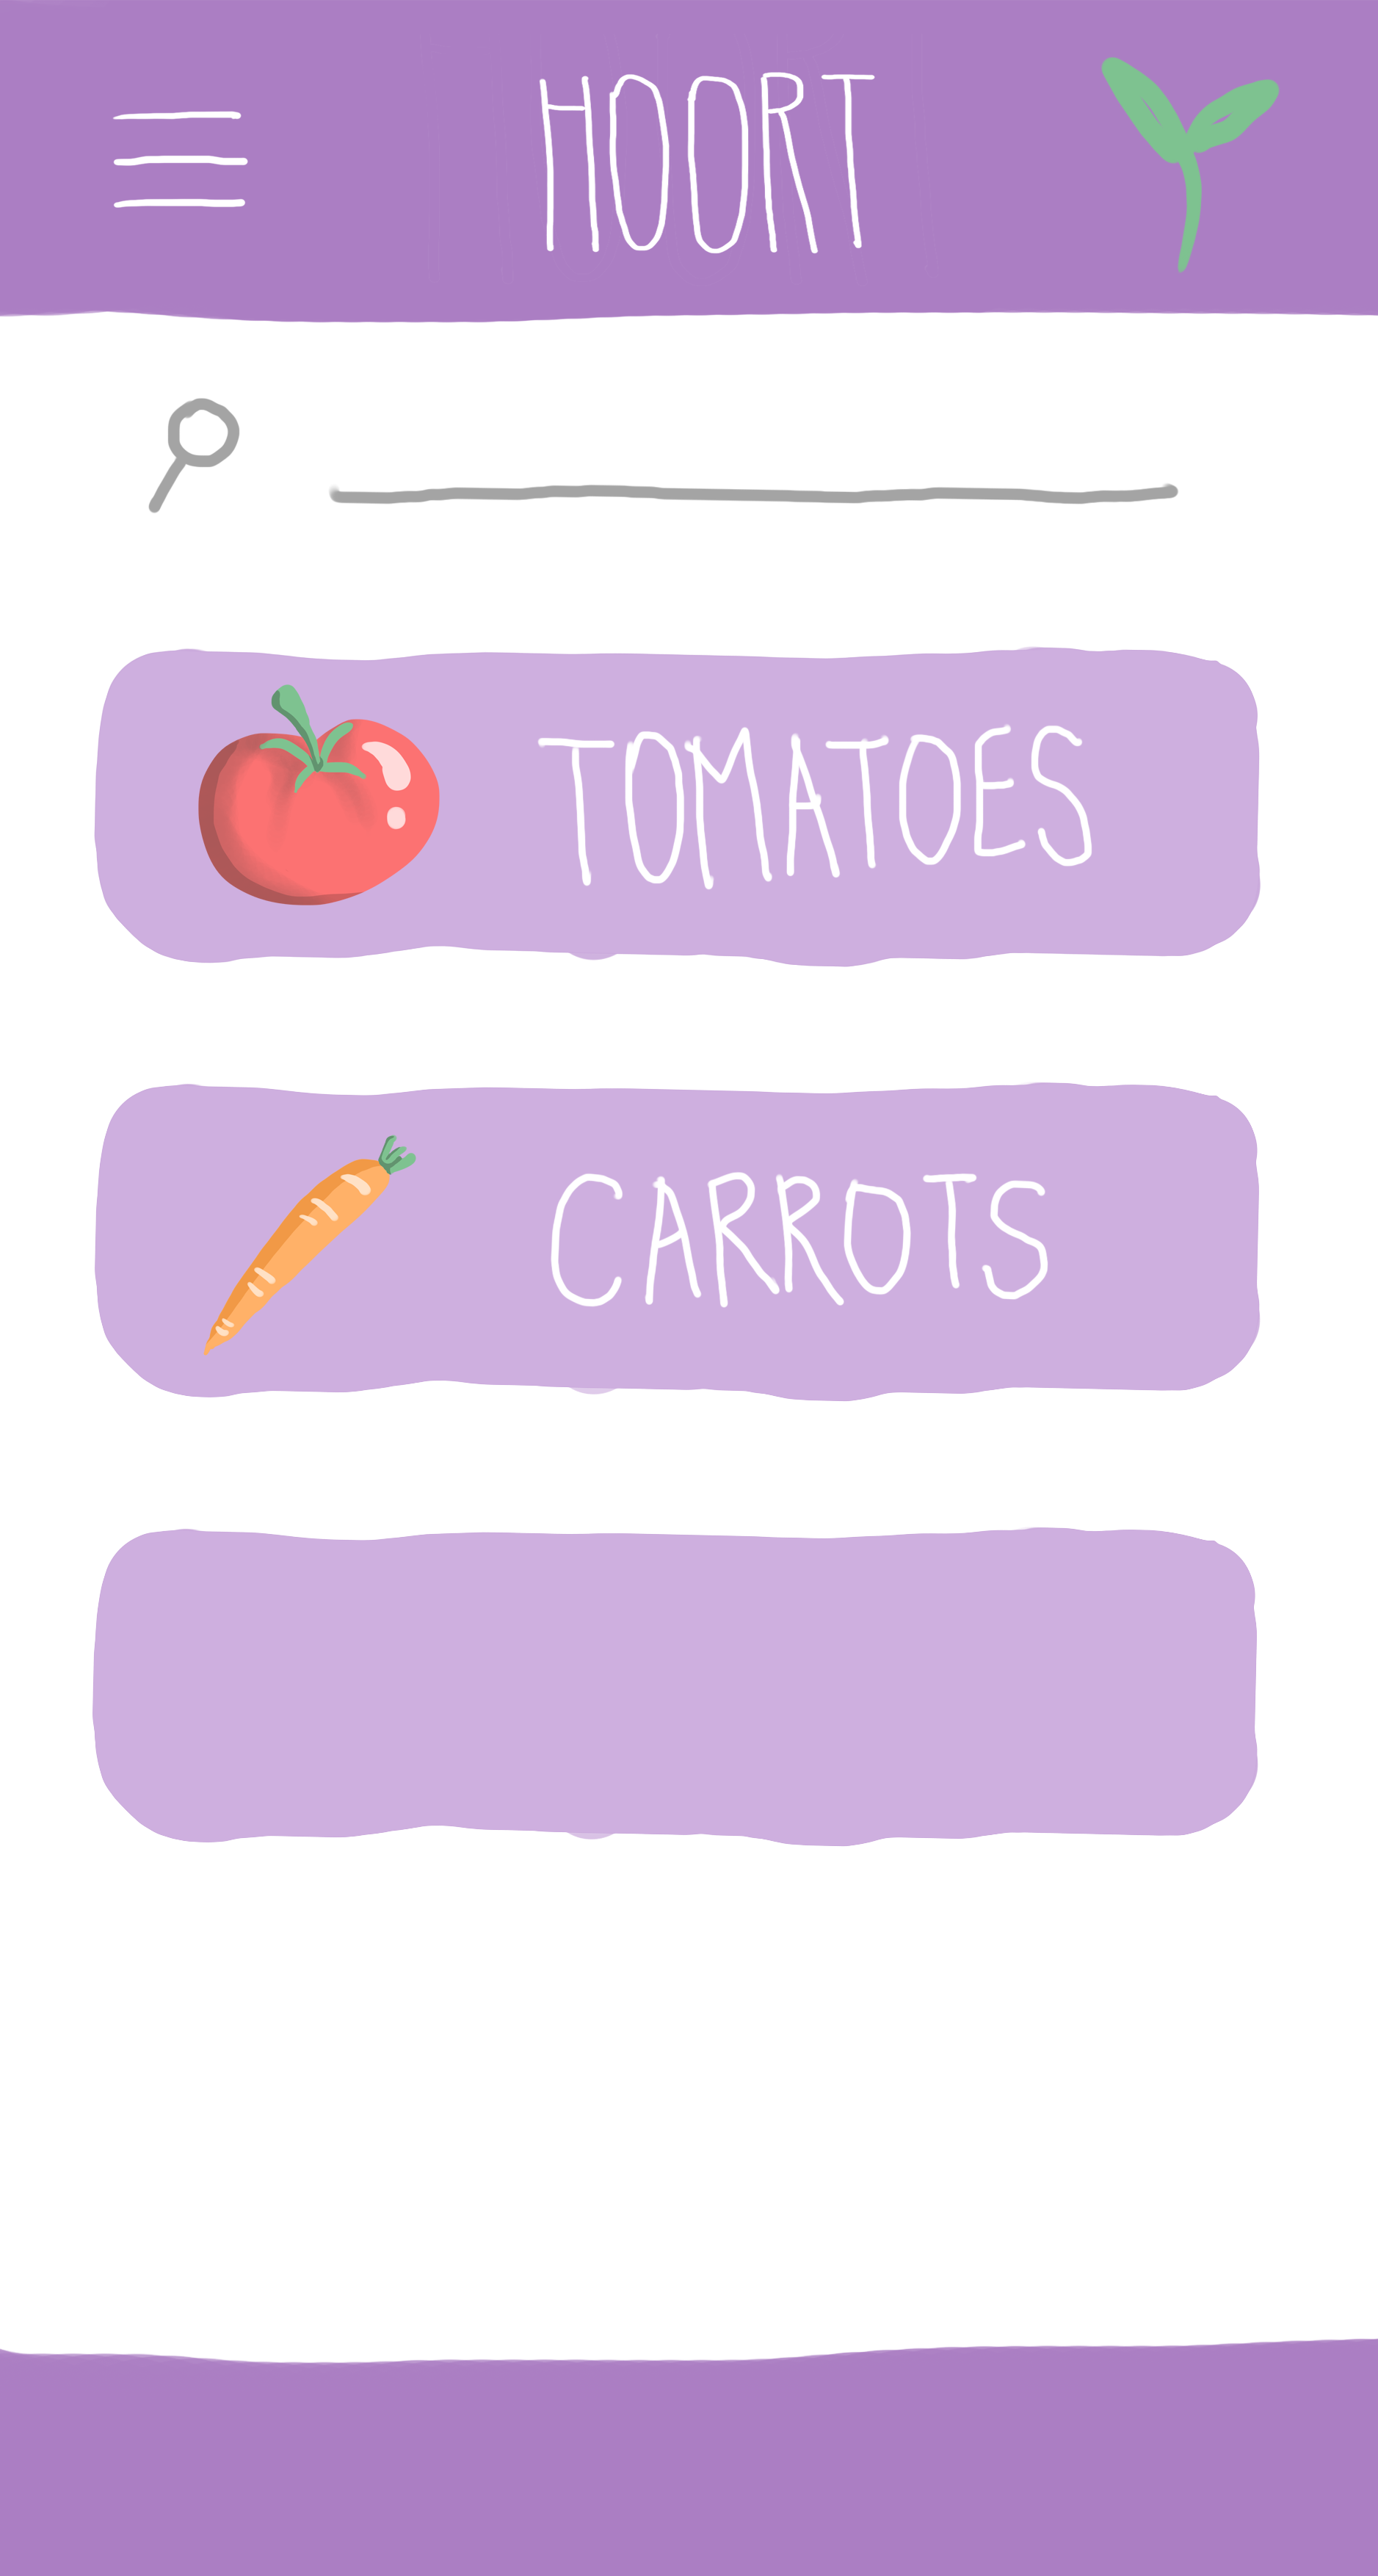 HOORT
TOMATOES
CARROTS